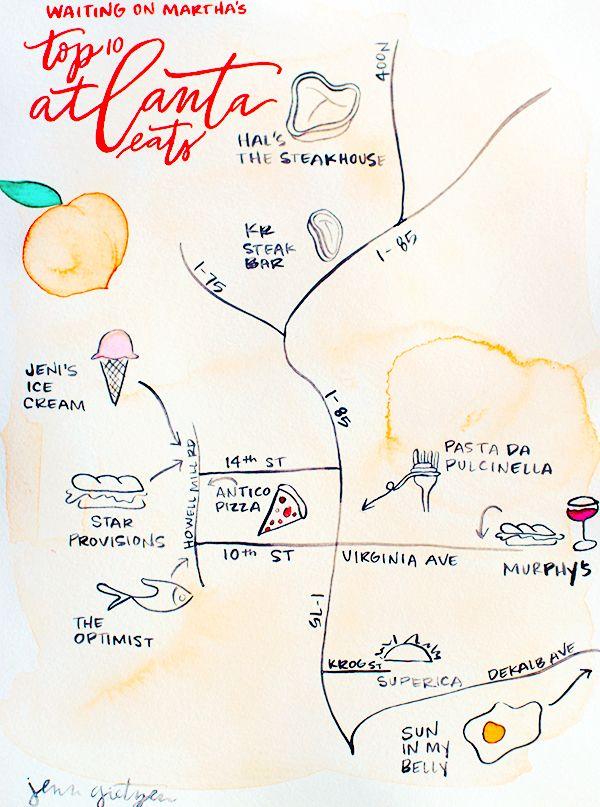 WAITING ON MARTHA'S
top 10
atlanta
eats
400N
HAL'S
THE STEAKHOUSE
KR
STEAK
BAR
I-85
I-75
JENI'S
ICE
CREAM
I-85
PASTA DA
PULCINELLA
14th ST
HOWELL MILL RD
ANTICO
PIZZA
STAR
PROVISIONS
10th ST
VIRGINIA AVE
MURPHY'S
I-75
THE
OPTIMIST
KROG ST
SUPERICA
DEKALB AVE
SUN
IN MY
BELLY
jenn gietzen